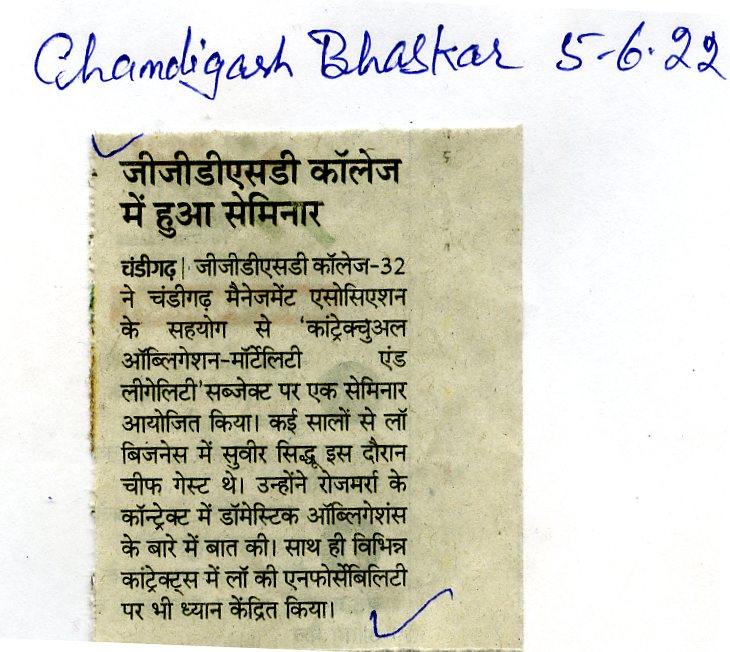 Chandigarh Bhaskar 5-6-22
जीजीडीएसडी कॉलेज
में हुआ सेमिनार
चंडीगढ़| जीजीडीएसडी कॉलेज-32
ने चंडीगढ़ मैनेजमेंट एसोसिएशन
के सहयोग से 'कांट्रेक्चुअल
ऑब्लिगेशन-मॉर्टेलिटी एंड
लीगेलिटी'सब्जेक्ट पर एक सेमिनार
आयोजित किया। कई सालों से लॉ
बिजनेस में सुवीर सिद्धू इस दौरान
चीफ गेस्ट थे। उन्होंने रोजमर्रा के
कॉन्ट्रेक्ट में डॉमेस्टिक ऑब्लिगेशंस
के बारे में बात की। साथ ही विभिन्न
कांट्रेक्ट्स में लॉ की एनफोर्सेबिलिटी
पर भी ध्यान केंद्रित किया।